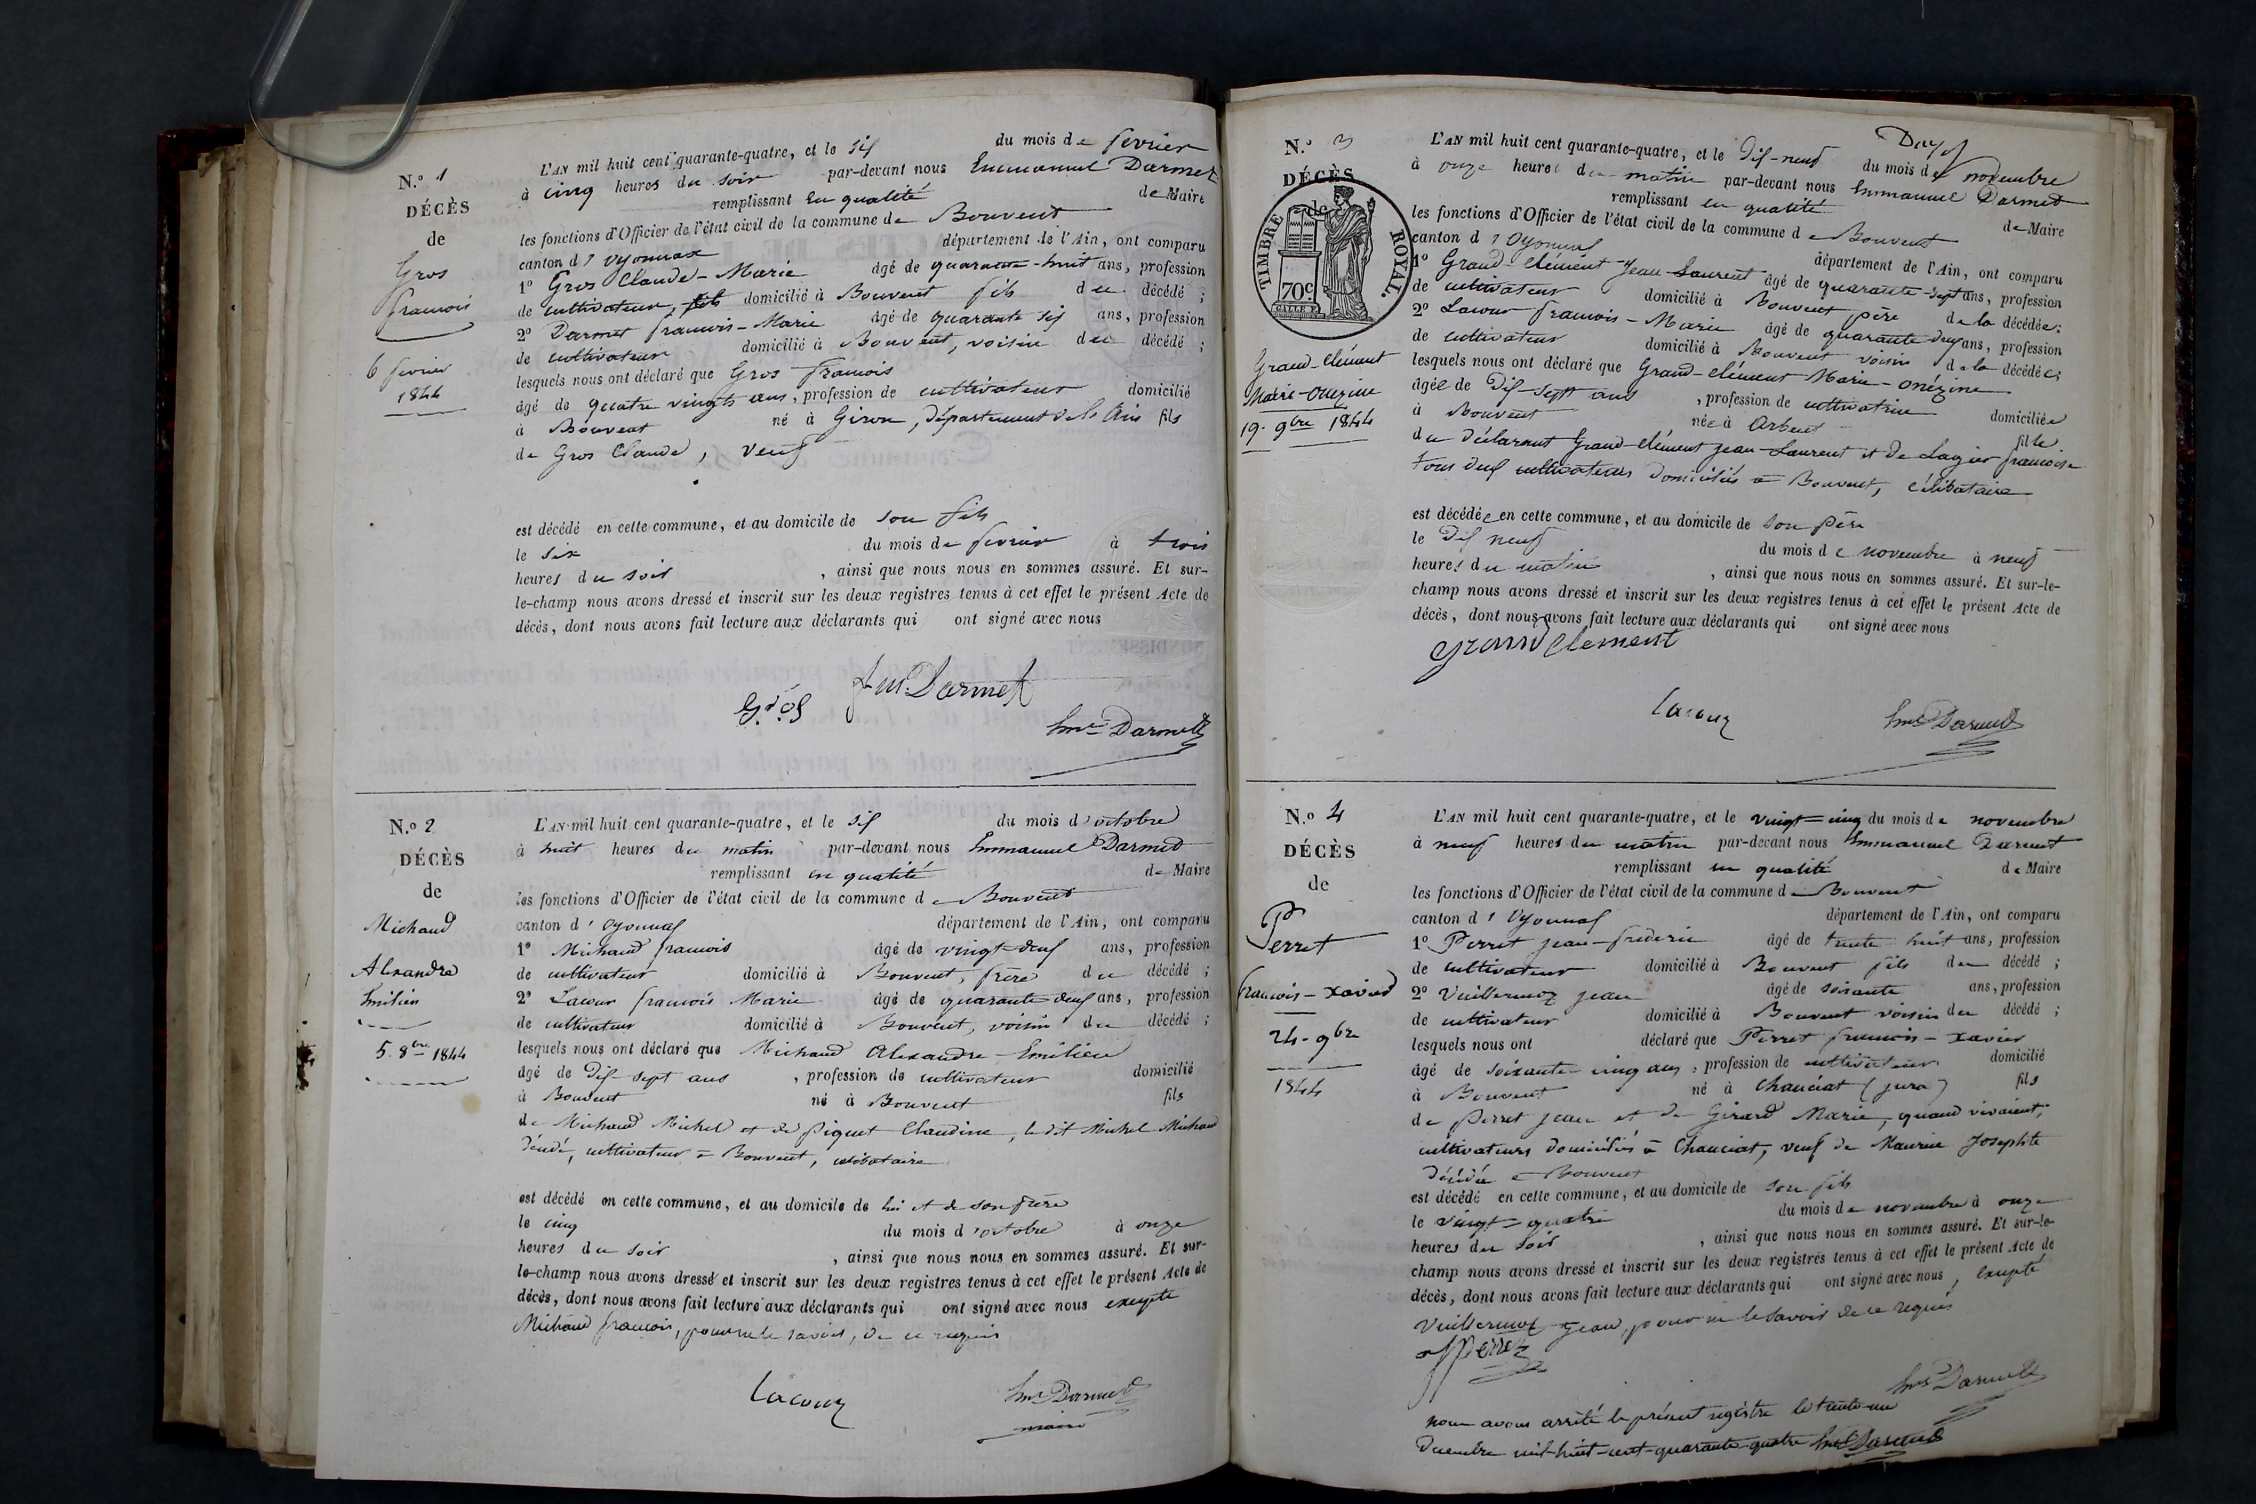 N.º 1
DÉCÈS
de
Gros
francois
6 fevrier
1844
L'AN mil huit cent quarante-quatre, et le six du mois de fevrier
à cinq heures du soir par-devant nous Emmanuel Darmet
remplissant en qualité de Maire
les fonctions d'Officier de l'état civil de la commune de Bouvent
canton d'oyonnax département de l'Ain, ont comparu
1º Gros Claude-Marie âgé de quarante-huit ans, profession
de cultivateur, fils domicilié à Bouvent fils du décédé ;
2º Darmet francois-Marie âgé de quarante six ans, profession
de cultivateur domicilié à Bouvent, voisin du décédé ;
lesquels nous ont déclaré que Gros francois
âgé de quatre vingts ans, profession de cultivateur domicilié
à Bouvent né à Giron, département de l'Ain fils
de Gros Claude, veuf
est décédé en cette commune, et au domicile de son fils
le six du mois de fevrier à trois
heures du soir , ainsi que nous nous en sommes assuré. Et sur-
le-champ nous avons dressé et inscrit sur les deux registres tenus à cet effet le présent Acte de
décès, dont nous avons fait lecture aux déclarants qui ont signé avec nous
Gros fm. Darmet
Eml Darmet
N.º 2
DÉCÈS
de
Michaud
Alexandre
Emilien
5. 8bre 1844
L'AN mil huit cent quarante-quatre, et le six du mois d'octobre
à huit heures du matin par-devant nous Emmanuel Darmet
remplissant en qualité de Maire
les fonctions d'Officier de l'état civil de la commune de Bouvent
canton d'oyonnax département de l'Ain, ont comparu
1º Michaud francois âgé de vingt-deux ans, profession
de cultivateur domicilié à Bouvent, frère du décédé ;
2º Lacour francois Marie âgé de quarante-deux ans, profession
de cultivateur domicilié à Bouvent, voisin du décédé ;
lesquels nous ont déclaré que Michaud Alexandre-Emilien
âgé de dix-sept ans , profession de cultivateur domicilié
à Bouvent né à Bouvent fils
de Michaud Michel et de piquet Claudine, le dit Michel Michaud
décédé, cultivateur à Bouvent, célibataire
est décédé en cette commune, et au domicile de lui et de son frère
le cinq du mois d'octobre à onze
heures du soir , ainsi que nous nous en sommes assuré. Et sur-
le-champ nous avons dressé et inscrit sur les deux registres tenus à cet effet le présent Acte de
décès, dont nous avons fait lecture aux déclarants qui ont signé avec nous excepté
Michaud francois, pour ne le savoir, de ce requis
Lacour Eml Darmet
maire
N.º 3
DÉCÈS
de
TIMBRE ROYAL.
70c
Grand-clément
Marie-onezine
19. 9bre 1844
L'AN mil huit cent quarante-quatre, et le dix-neuf du mois de novembre
à onze heures du matin par-devant nous Emmanuel Darmet
remplissant en qualité de Maire
les fonctions d'Officier de l'état civil de la commune de Bouvent
canton d'oyonnax département de l'Ain, ont comparu
1º Grand-clément Jean-Laurent âgé de quarante-sept ans, profession
de cultivateur domicilié à Bouvent père de la décédée ;
2º Lacour francois-Marie âgé de quarante deux ans, profession
de cultivateur domicilié à Bouvent voisin de la décédée ;
lesquels nous ont déclaré que Grand-clément Marie-onézine
âgée de dix-sept ans , profession de cultivatrice domiciliée
à Bouvent née à Arbent fille
du déclarant Grand-clément Jean-Laurent et de Lagier francoise
tous deux cultivateurs domiciliés à Bouvent, célibataire
est décédée en cette commune, et au domicile de son père
le dix neuf du mois de novembre à neuf
heures du matin , ainsi que nous nous en sommes assuré. Et sur-le-
champ nous avons dressé et inscrit sur les deux registres tenus à cet effet le présent Acte de
décès, dont nous avons fait lecture aux déclarants qui ont signé avec nous
grandclement
Lacour Eml Darmet
N.º 4
DÉCÈS
de
Perret
francois-xavier
24-9bre
1844
L'AN mil huit cent quarante-quatre, et le vingt-cinq du mois de novembre
à neuf heures du matin par-devant nous Emmanuel Darmet
remplissant en qualité de Maire
les fonctions d'Officier de l'état civil de la commune de Bouvent
canton d'oyonnax département de l'Ain, ont comparu
1º Perret jean-frederic âgé de trente huit ans, profession
de cultivateur domicilié à Bouvent fils du décédé ;
2º Vuillermoz jean âgé de soixante ans, profession
de cultivateur domicilié à Bouvent voisin du décédé ;
lesquels nous ont déclaré que Perret francois-xavier
âgé de soixante-cinq ans, profession de cultivateur domicilié
à Bouvent né à Chanciat (jura) fils
de Perret jean et de Girard Marie, quand vivaient,
cultivateurs domiciliés à Chanciat, veuf de Maurice Josephte
décédée à Bouvent
est décédé en cette commune, et au domicile de son fils
le vingt-quatre du mois de novembre à onze
heures du soir , ainsi que nous nous en sommes assuré. Et sur-le-
champ nous avons dressé et inscrit sur les deux registres tenus à cet effet le présent Acte de
décès, dont nous avons fait lecture aux déclarants qui ont signé avec nous, excepté
Vuillermoz Jean, pour ne le savoir de ce requis
Perret
Eml Darmet
nous avons arrêté le présent régistre le trente-un
decembre mil-huit-cent-quarante-quatre Eml Darmet